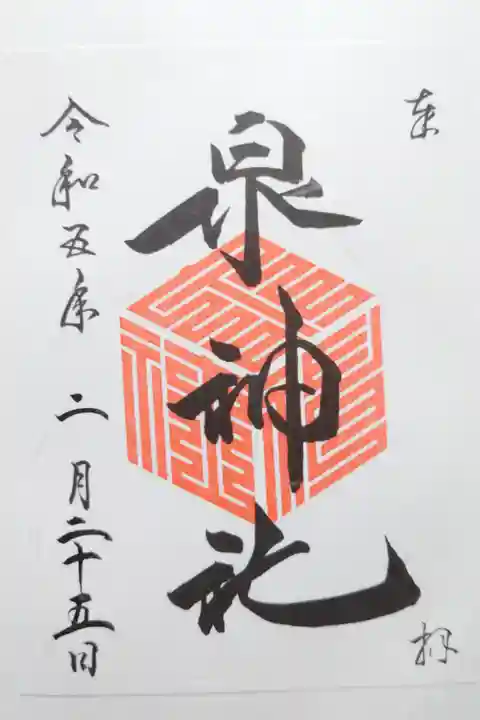 奉 拝
泉神社
令和五年 二月二十五日